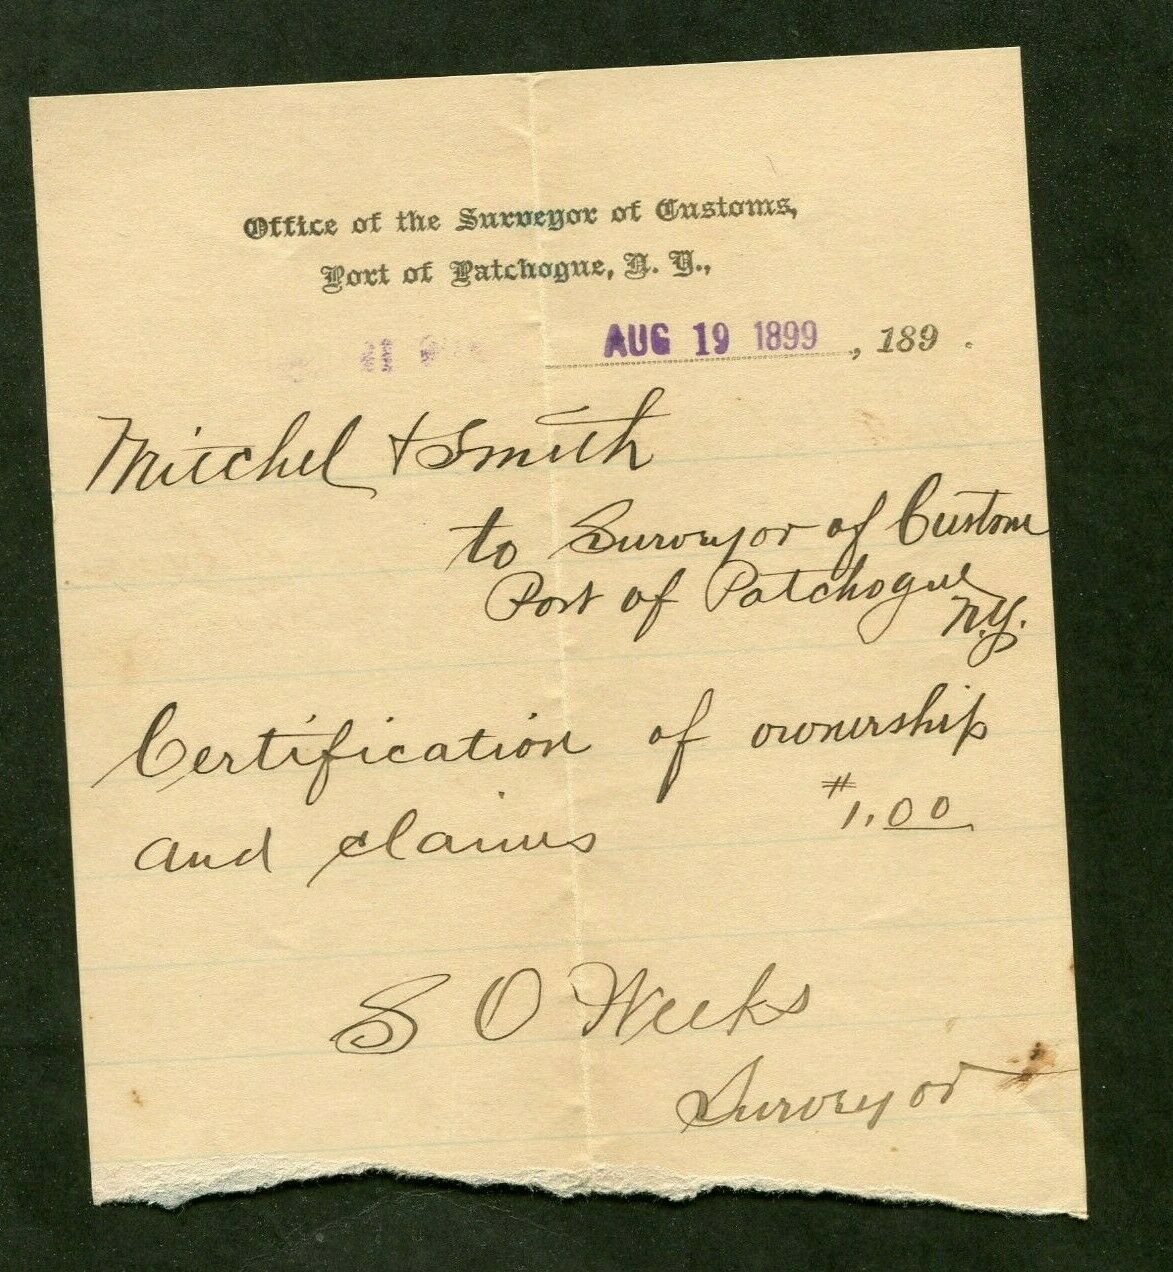 Office of the Surveyor of Customs,
Port of Patchogue, N. Y.,
AUG 19 1899 , 189 .
Mitchel & Smith
to Surveyor of Custom
Port of Patchogue
N.Y.
Certification of ownership
and claims $1.00
S O Weeks
Surveyor